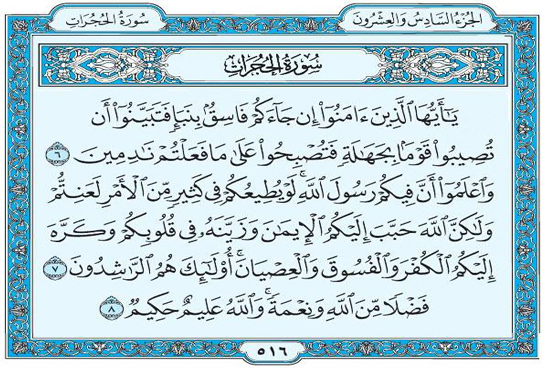 الجزء السادس والعشرون
سورة الحجرات
سورة الحجرات
يَٰٓأَيُّهَا ٱلَّذِينَ ءَامَنُوٓا۟ إِن جَآءَكُمْ فَاسِقٌۢ بِنَبَإٍ فَتَبَيَّنُوٓا۟ أَن
تُصِيبُوا۟ قَوْمًۢا بِجَهَٰلَةٍ فَتُصْبِحُوا۟ عَلَىٰ مَا فَعَلْتُمْ نَٰدِمِينَ ٦
وَٱعْلَمُوٓا۟ أَنَّ فِيكُمْ رَسُولَ ٱللَّهِ ۚ لَوْ يُطِيعُكُمْ فِى كَثِيرٍ مِّنَ ٱلْأَمْرِ لَعَنِتُّمْ
وَلَٰكِنَّ ٱللَّهَ حَبَّبَ إِلَيْكُمُ ٱلْإِيمَٰنَ وَزَيَّنَهُۥ فِى قُلُوبِكُمْ وَكَرَّهَ
إِلَيْكُمُ ٱلْكُفْرَ وَٱلْفُسُوقَ وَٱلْعِصْيَانَ ۚ أُو۟لَٰٓئِكَ هُمُ ٱلرَّٰشِدُونَ ٧
فَضْلًا مِّنَ ٱللَّهِ وَنِعْمَةً ۚ وَٱللَّهُ عَلِيمٌ حَكِيمٌ ٨
٥١٦